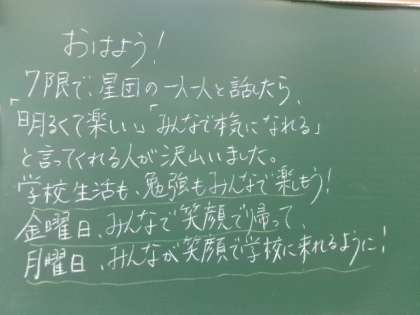 おはよう!
7限で、星団の一人一人と話したら、
「明るくて楽しい」「みんなで本気になれる」
と言ってくれる人が沢山いました。
学校生活も、勉強もみんなで楽しもう!
金曜日、みんなで笑顔で帰って、
月曜日、みんなが笑顔で学校に来れるように!